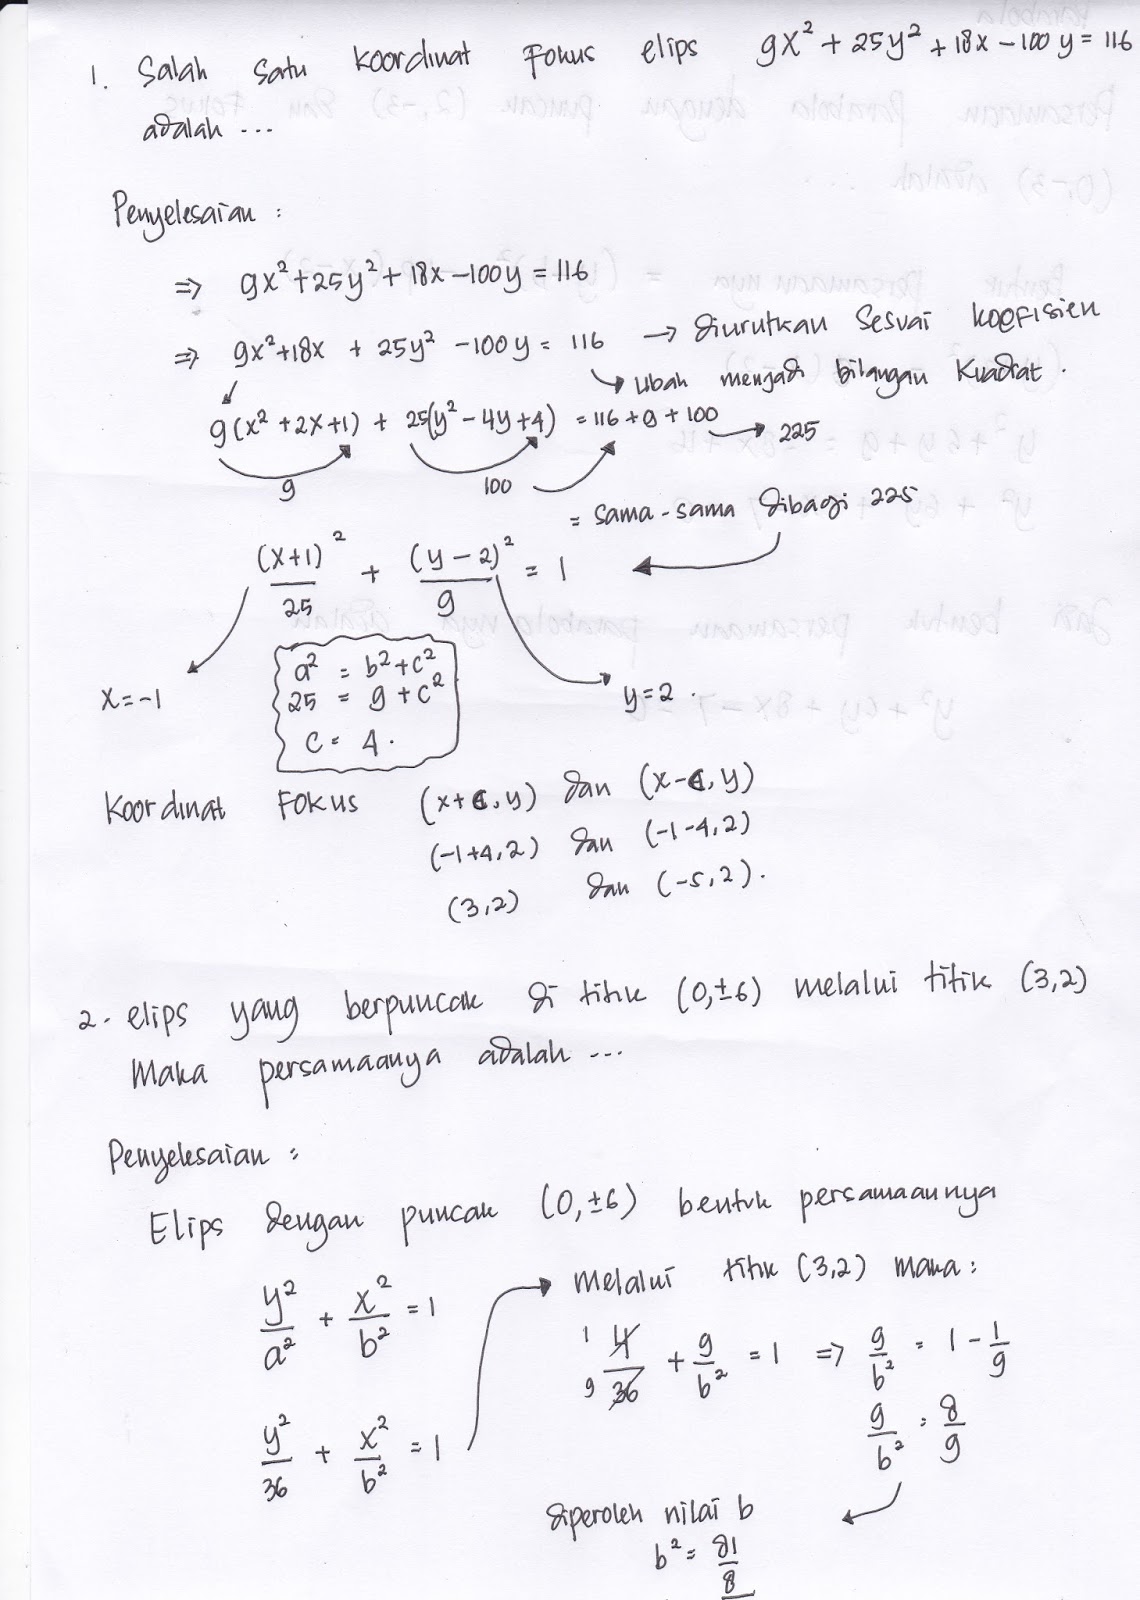 1. Salah satu koordinat Fokus elips 9x² + 25y² + 18x - 100y = 116
adalah ...
Penyelesaian :
=> 9x² + 25y² + 18x - 100y = 116
=> 9x² + 18x + 25y² - 100y = 116 → diurutkan Sesuai koefisien
→ Ubah menjadi bilangan kuadrat .
9(x² + 2x + 1) + 25(y² - 4y + 4) = 116 + 9 + 100 → 225
9 100
= sama - sama dibagi 225
(x+1)²/25 + (y - 2)²/9 = 1
x = -1
a² = b² + c²
25 = 9 + c²
c = 4 .
y = 2 .
Koordinat Fokus (x+c, y) dan (x-c, y)
(-1+4, 2) dan (-1-4, 2)
(3,2) dan (-5,2).
2. elips yang berpuncak di titik (0,±6) melalui titik (3,2)
Maka persamaanya adalah ...
Penyelesaian :
Elips dengan puncak (0,±6) bentuk persamaannya
y²/a² + x²/b² = 1
y²/36 + x²/b² = 1
Melalui titik (3,2) maka :
1 4/9 36 + 9/b² = 1 => 9/b² = 1 - 1/9
9/b² = 8/9
diperoleh nilai b
b² = 81/8